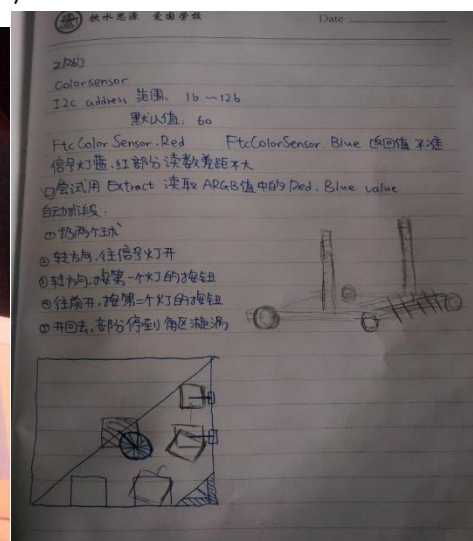 饮水思源 爱国荣校 Date
2月26日
Colorsensor
I2c address 范围: 16 — 126
默认值: 60
Ftc Color Sensor. Red FtcColorSensor. Blue 返回值不准
信号灯蓝、红部分读数差距不大
尝试用 Extract 读取 ARGB值中的 Red、Blue value
自动阶段:
① 扔两个球
② 转方向,往信号灯开
③ 转方向,按第一个灯的按钮
④ 往前开,按第二个灯的按钮
⑤ 开回去,部分停到角区漩涡